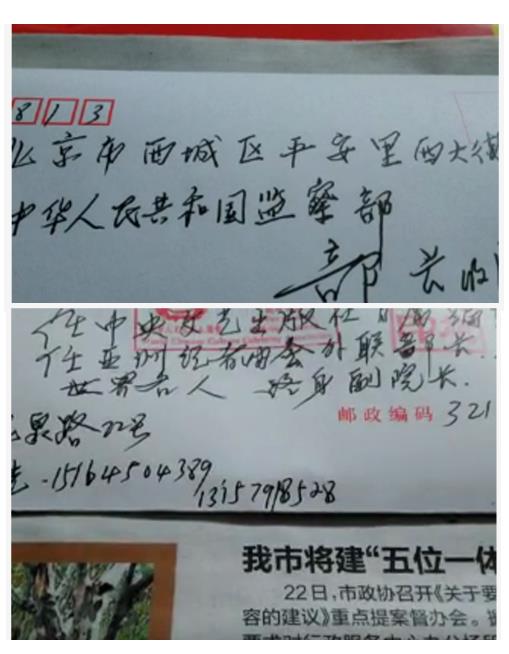 813
北京市西城区平安里西大街
中华人民共和国监察部
部长收
任中央文艺出版社
任亚洲记者协会外联部长
世界名人 终身副院长.
邮政编码 321
泉路22号
15164504389
13157918528
我市将建“五位一体
22日,市政协召开《关于要
容的建议》重点提案督办会。